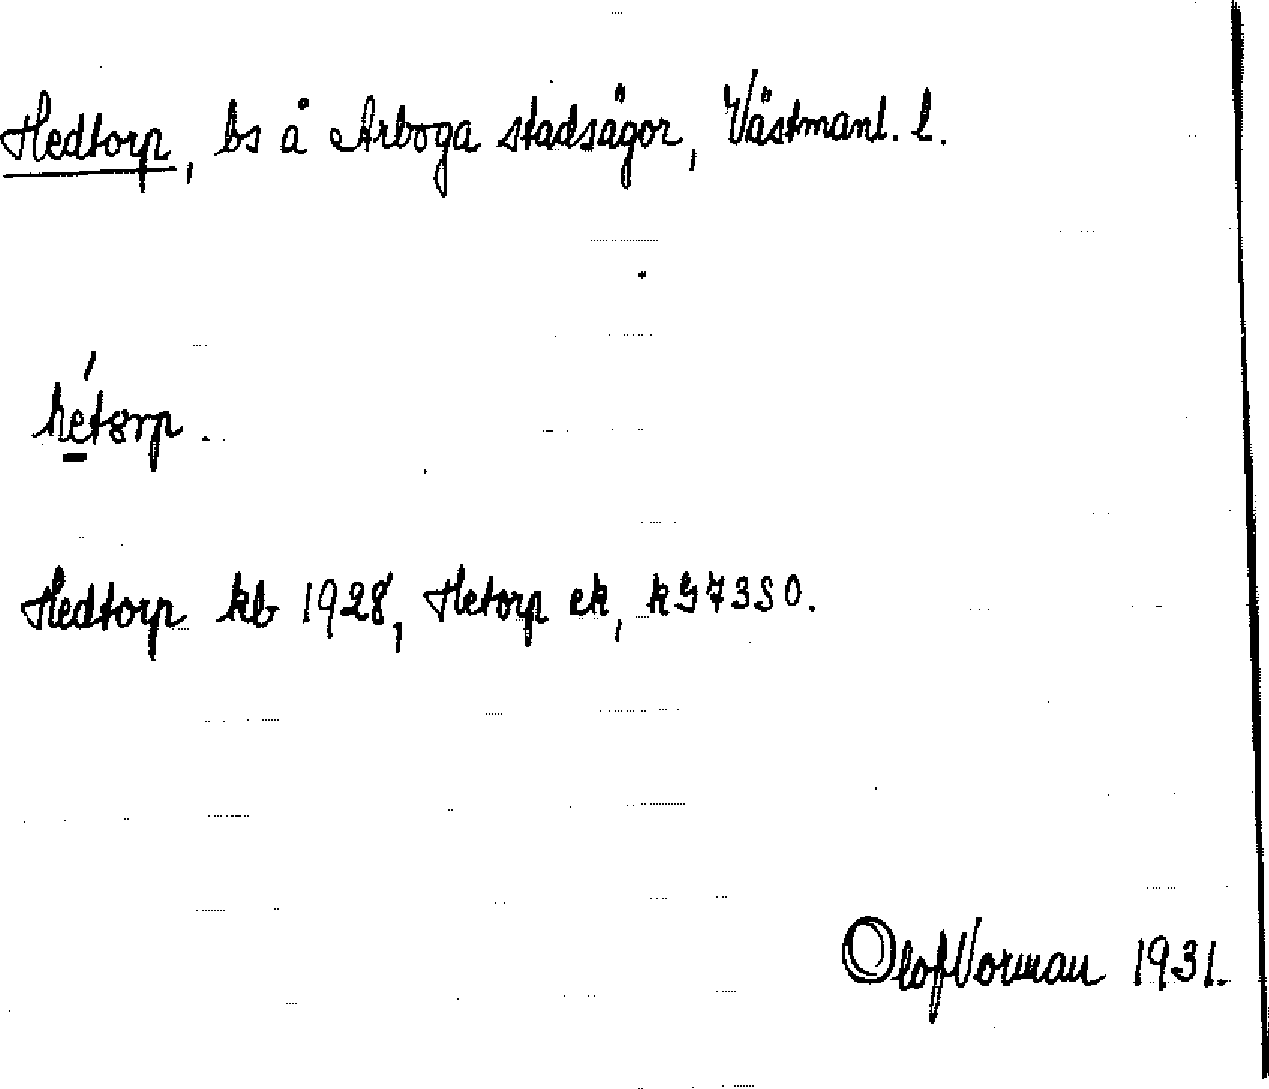 Hedtorp, bs å Arboga stadsägor, Västmanl. l.
hétorp.
Hedtorp kb 1928, Hetorp ek, kG 73 SO.
Olof Vorman 1931.